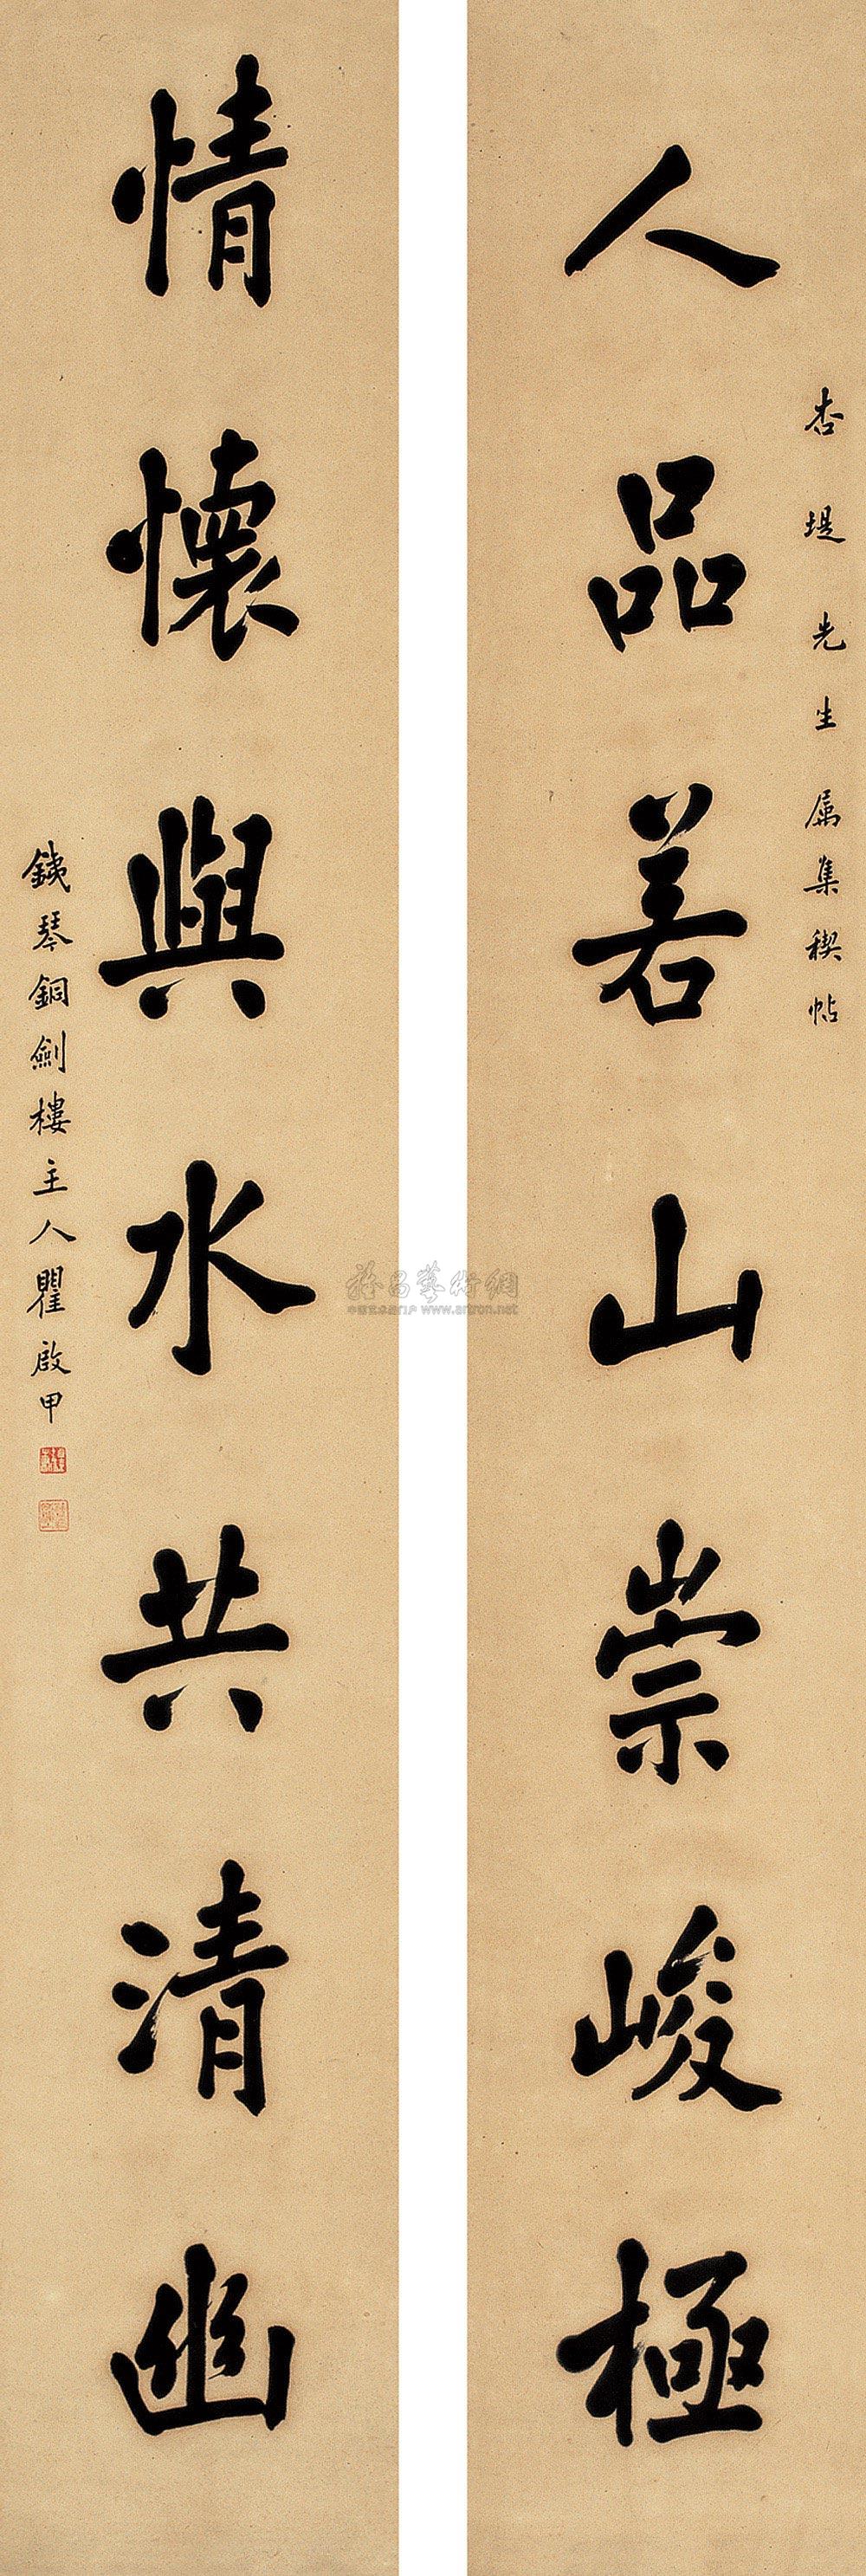 人品若山崇峻極
杏堤先生属集稧帖
情懷與水共清幽
鐵琴銅劍樓主人瞿啟甲
雅昌藝術網
中国艺术品门户 www.artron.net